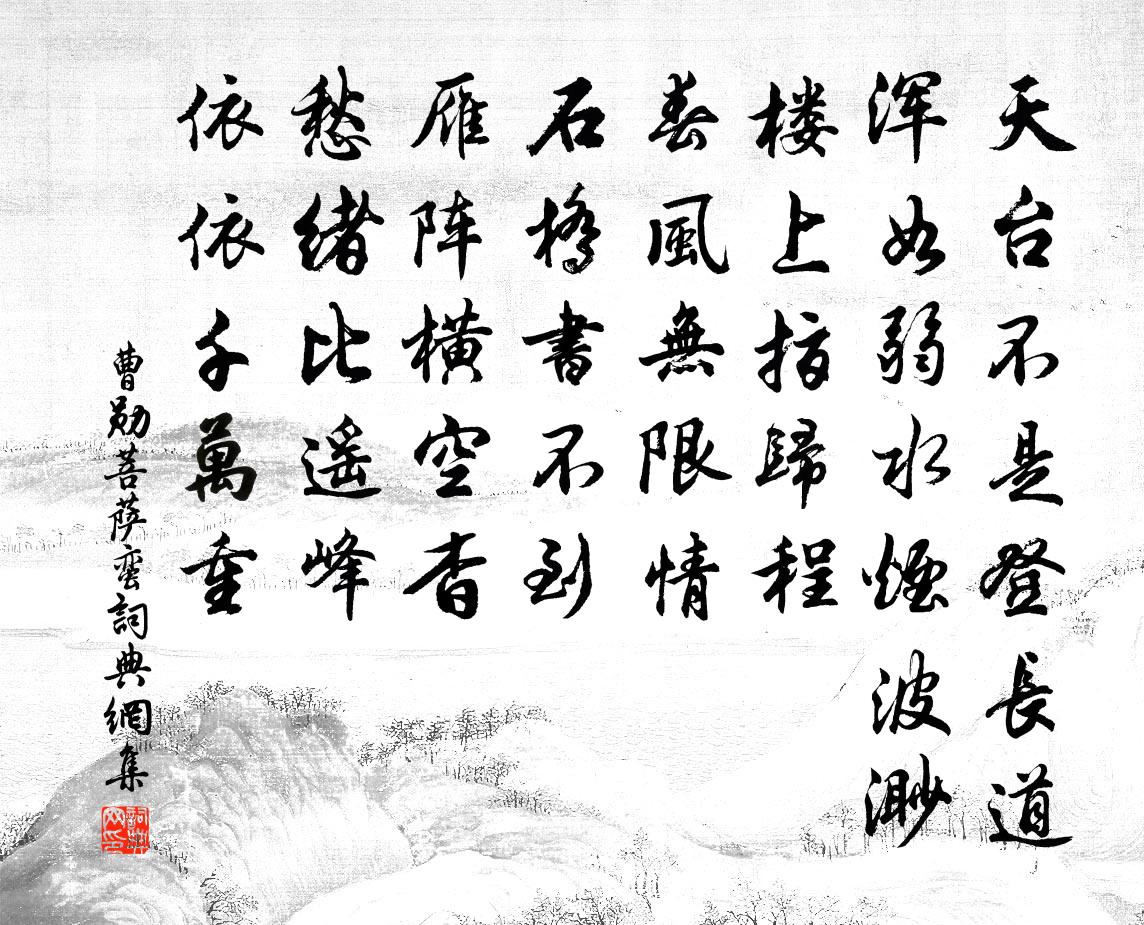 天台不是登長道
浑如弱水煙波渺
楼上指歸程
春風無限情
石橋書不到
雁阵横空杳
愁緒比遥峰
依依千萬重
曹勋菩萨蛮詞典網集